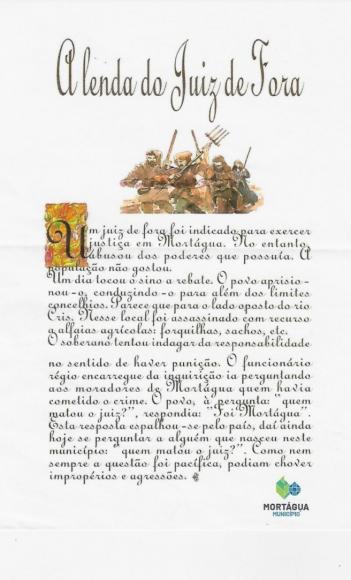 A lenda do Juiz de Fora
Um juiz de fora foi indicado para exercer
justiça em Mortágua. No entanto,
abusou dos poderes que possuía. A
população não gostou.
Um dia tocou o sino a rebate. O povo aprisio-
nou-o, conduzindo-o para além dos limites
concelhios. Parece que para o lado oposto do rio
Cris. Nesse local foi assassinado com recurso
a alfaias agrícolas: forquilhas, sachos, etc.
O soberano tentou indagar da responsabilidade
no sentido de haver punição. O funcionário
régio encarregue da inquirição ia perguntando
aos moradores de Mortágua quem havia
cometido o crime. O povo, à pergunta: "quem
matou o juiz?", respondia: "Foi Mortágua".
Esta resposta espalhou-se pelo país, daí ainda
hoje se perguntar a alguém que nasceu neste
município: "quem matou o juiz?". Como nem
sempre a questão foi pacífica, podiam chover
impropérios e agressões.
MORTÁGUA
MUNICÍPIO